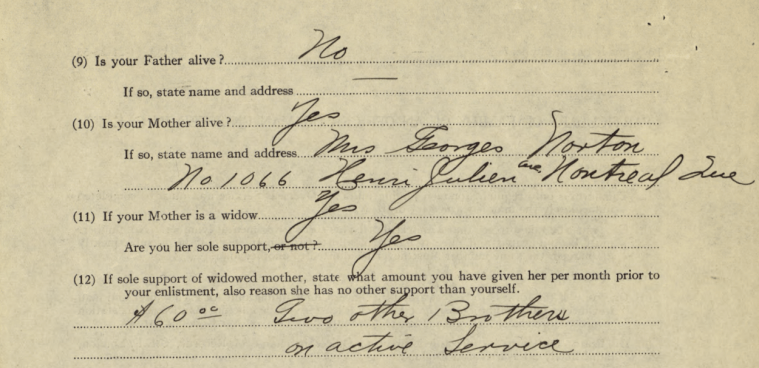 (9) Is your Father alive? No
If so, state name and address —
(10) Is your Mother alive? Yes
If so, state name and address Mrs Georges Norton
No 1066 Henri Julien ave Montreal Que
(11) If your Mother is a widow Yes
Are you her sole support, or not? Yes
(12) If sole support of widowed mother, state what amount you have given her per month prior to
your enlistment, also reason she has no other support than yourself.
$60 oo Two other Brothers
on active Service